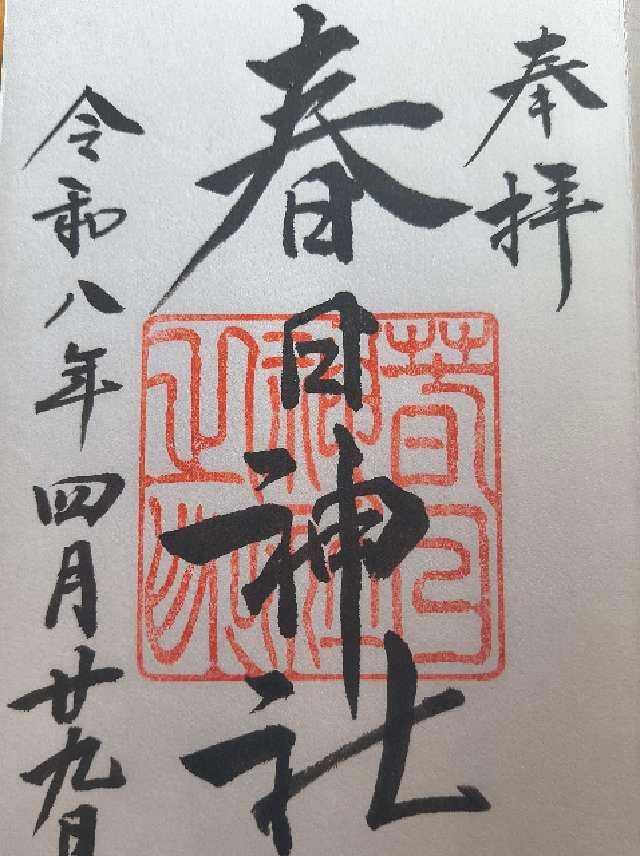 奉拝
春日神社
春日神社之印
令和八年四月廿九日